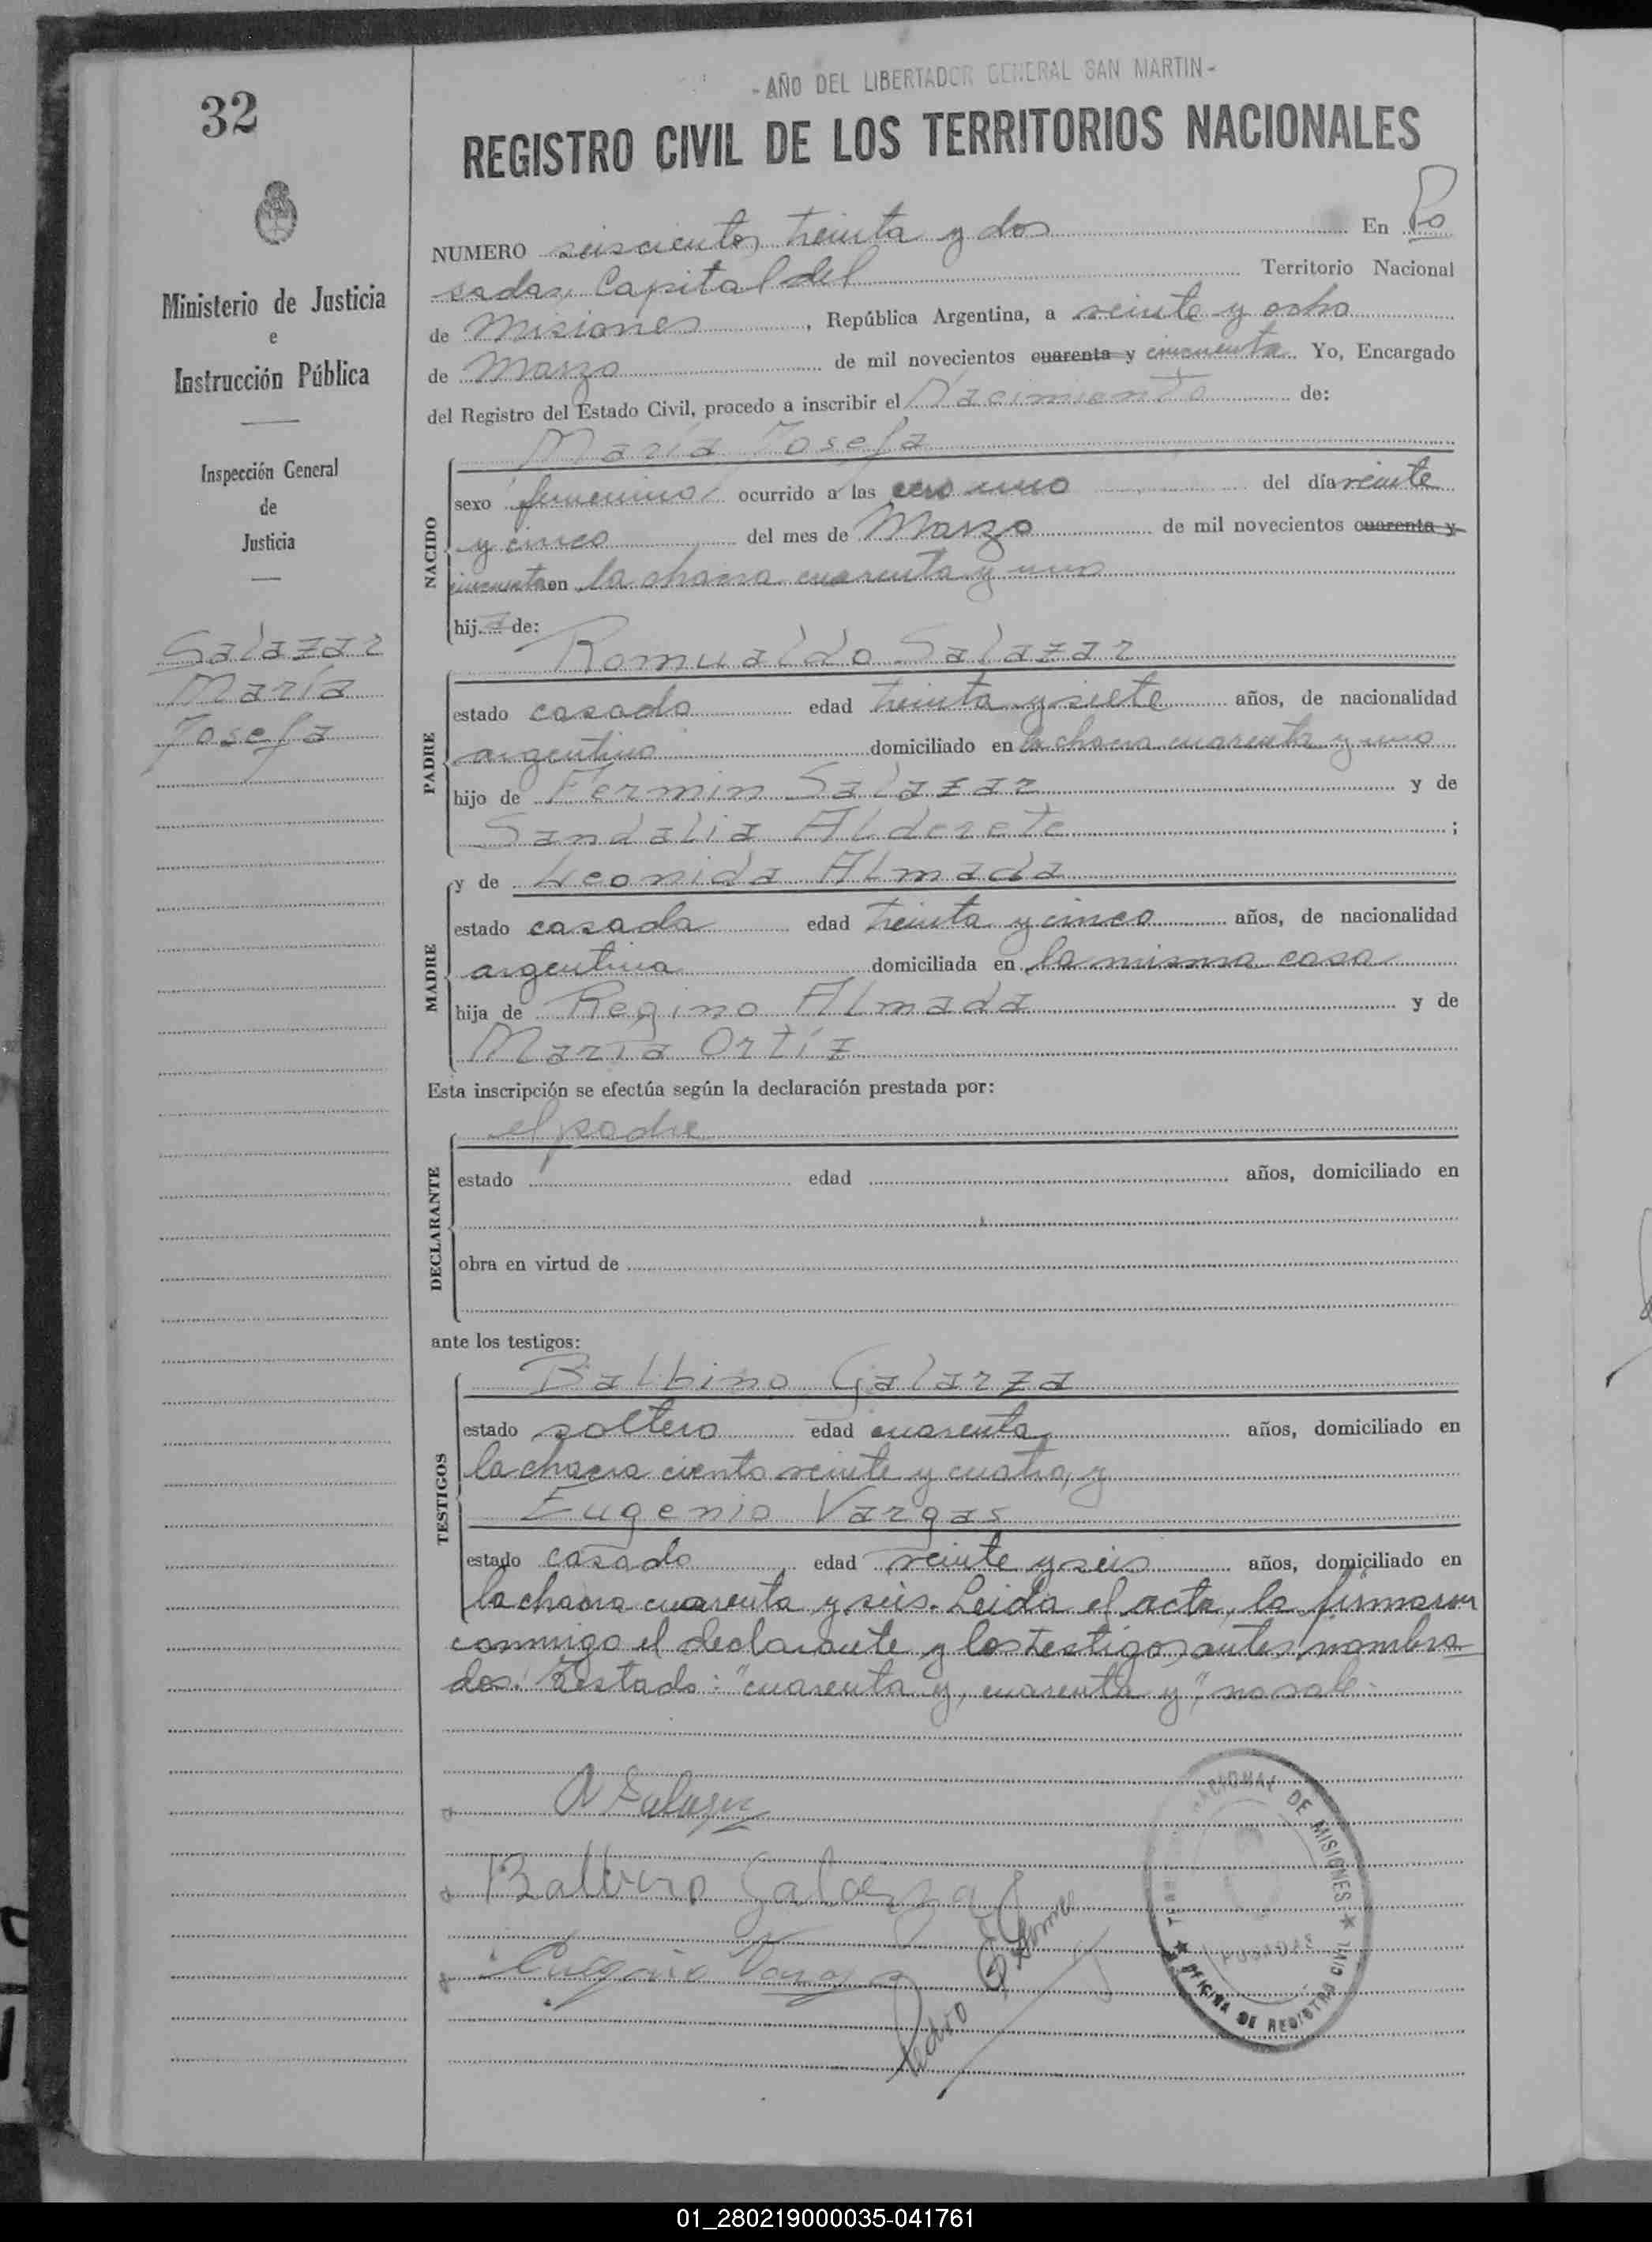 32
- AÑO DEL LIBERTADOR GENERAL SAN MARTIN -
REGISTRO CIVIL DE LOS TERRITORIOS NACIONALES
Ministerio de Justicia
e
Instrucción Pública
Inspección General
de
Justicia
Salazar
María
Josefa
NUMERO seiscientos treinta y dos En Po
sadas, Capital del Territorio Nacional
de Misiones, República Argentina, a veinte y ocho
de Marzo de mil novecientos cuarenta y cincuenta. Yo, Encargado
del Registro del Estado Civil, procedo a inscribir el Nacimiento de:
María Josefa
NACIDO
sexo femenino ocurrido a las cero uno del día veinte
y cinco del mes de Marzo de mil novecientos cuarenta y
cincuenta en la chacra cuarenta y uno
hija de:
Romualdo Salazar
PADRE
estado casado edad treinta y siete años, de nacionalidad
argentino domiciliado en la chacra cuarenta y uno
hijo de Fermin Salazar y de
Sandalia Alderete ;
y de Leonida Almada
MADRE
estado casada edad treinta y cinco años, de nacionalidad
argentina domiciliada en la misma casa
hija de Regino Almada y de
María Ortíz
Esta inscripción se efectúa según la declaración prestada por:
el padre
DECLARANTE
estado edad años, domiciliado en
obra en virtud de
ante los testigos:
Balbino Galarza
TESTIGOS
estado soltero edad cuarenta años, domiciliado en
la chacra ciento veinte y cuatro, y
Eugenio Vargas
estado casado edad veinte y seis años, domiciliado en
la chacra cuarenta y seis. Leida el acta, la firmaron
conmigo el declarante y los testigos antes nombra
dos. Testado: "cuarenta y, cuarenta y", no vale.
R Salazar
Balbino Galarza
Eugenio Vargas
NACIONAL DE MISIONES ★
POSADAS
★ OFICINA DE REGISTRO CIVIL
01_280219000035-041761